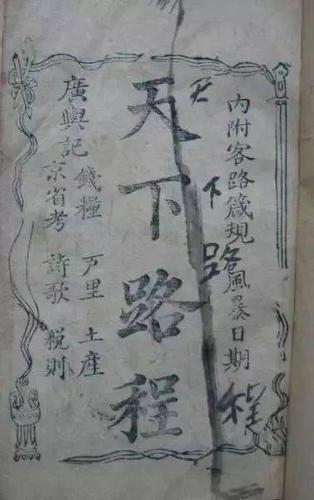 內附客路箴規風暴日期
天下路程
天下路程
廣輿記
錢糧 里 土產
京省考 詩歌 稅則